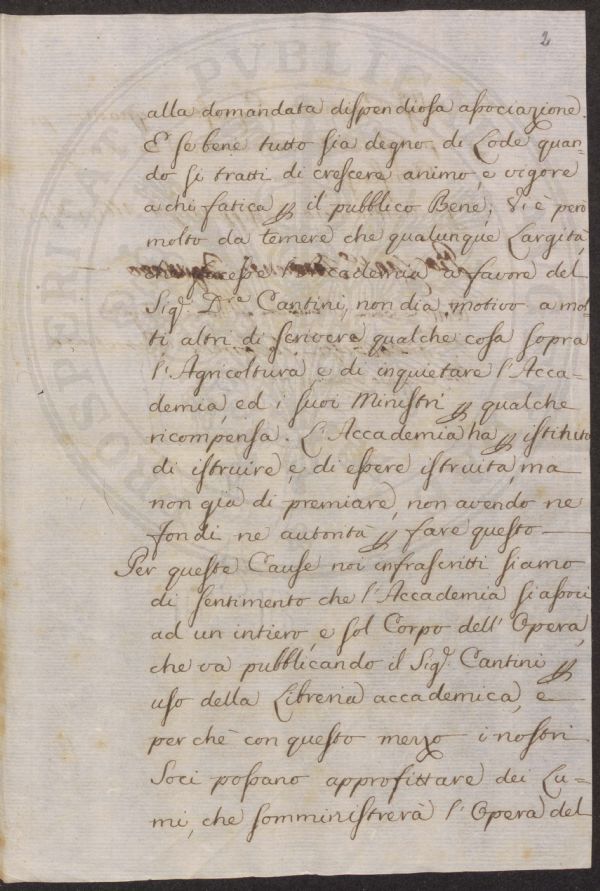 2
alla domandata dispendiosa associazione.
E se bene tutto sia degno di Lode quan-
do si tratti di crescere animo, e vigore
a chi fatica p il pubblico Bene; Vi è però
molto da temere che qualunque Largità,
che facesse l'Accademia a favore del
Sigr. Dre. Cantini, non dia motivo a mol-
ti altri di scrivere qualche cosa sopra
l'Agricoltura e di inquietare l'Acca-
demia, ed i suoi Ministri p qualche
ricompensa. L'Accademia ha p istituto
di istruire, e di essere istruita, ma
non già di premiare, non avendo ne
fondi ne autorità p fare questo —
Per queste Cause noi infrascritti siamo
di sentimento che l'Accademia si associ
ad un intiero, e sol Corpo dell'Opera,
che va pubblicando il Sigr. Cantini p
uso della Libreria accademica, e
perchè con questo mezzo i nostri
Soci possano approfittare dei Lu-
mi, che somministrerà l'Opera del
PROSPERITATI PUBLICAE